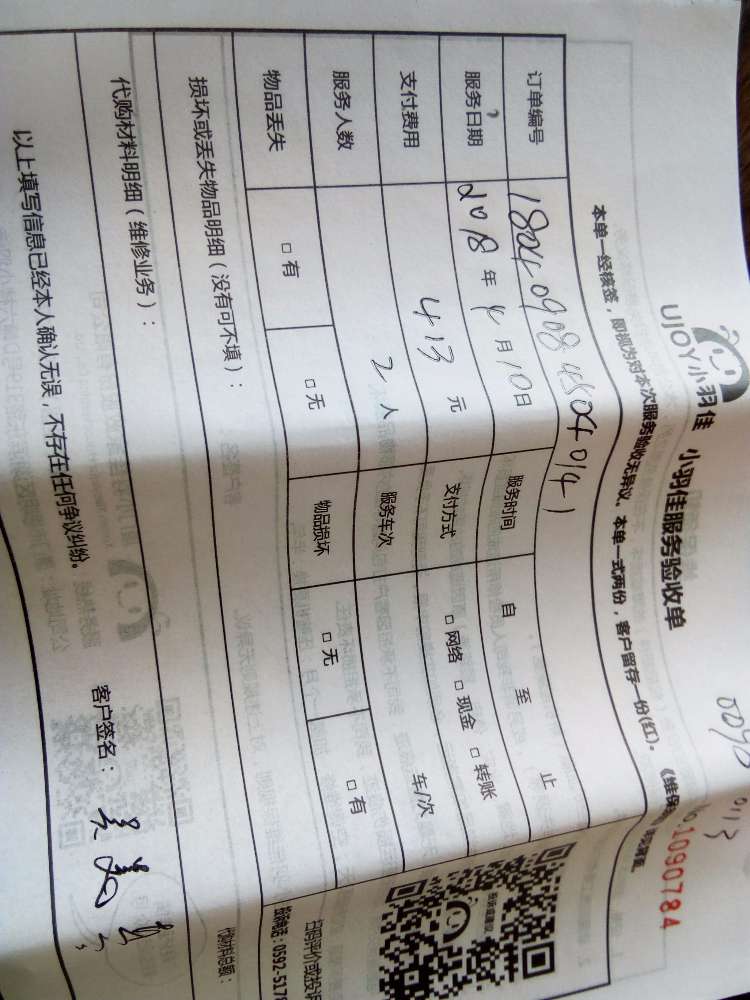 UJOY小羽佳 小羽佳服务验收单
No.1090784
本单一经核签，即视为对本次服务验收无异议。本单一式两份，客户留存一份(红)。
订单编号
服务日期 2018年4月10日 服务时间 自 至 止
支付费用 413元 支付方式 □网络 □现金 □转账
服务人数 2人 服务车次 车/次
物品丢失 □有 □无 物品损坏 □无 □有
损坏或丢失物品明细（没有可不填）：
代购材料明细（维修业务）： 代购材料总额：
以上填写信息已经本人确认无误，不存在任何争议纠纷。 客户签名：
投诉或建议
扫码评价或投诉
投诉电话：0592-5178